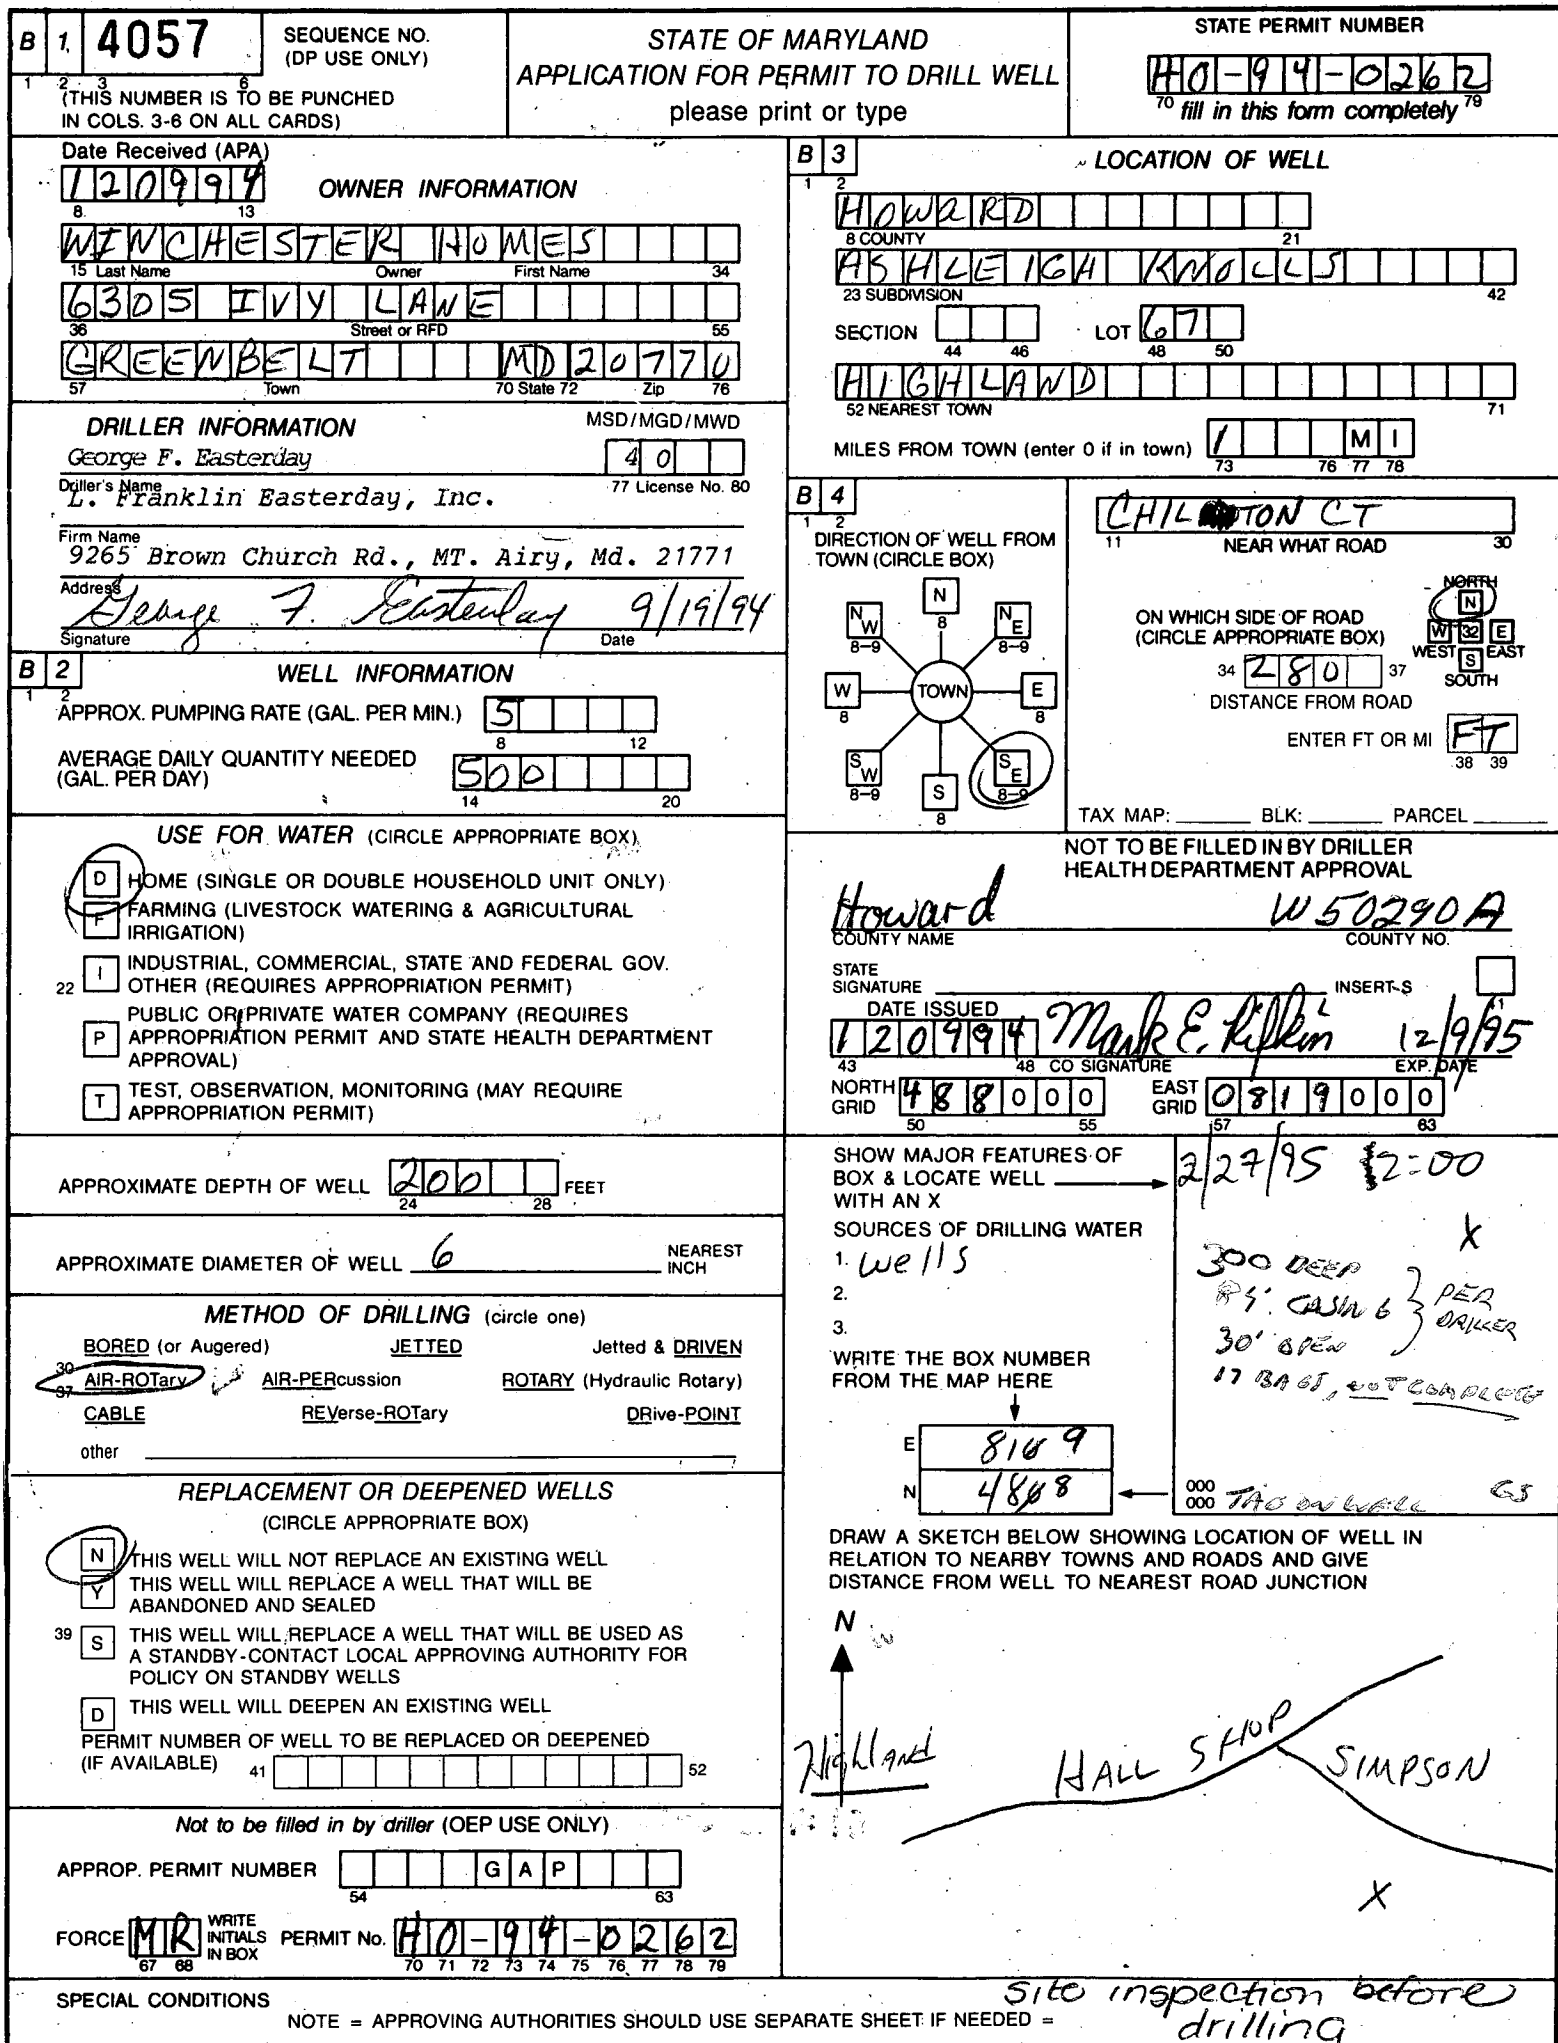 B 1 4057 SEQUENCE NO. (DP USE ONLY)
1 2 3 6
(THIS NUMBER IS TO BE PUNCHED
IN COLS. 3-6 ON ALL CARDS)
STATE OF MARYLAND
APPLICATION FOR PERMIT TO DRILL WELL
please print or type
STATE PERMIT NUMBER
HO-94-0262
70 fill in this form completely 79
Date Received (APA)
120994
8 13
OWNER INFORMATION
WINCHESTER HOMES
15 Last Name Owner First Name 34
6305 IVY LANE
36 Street or RFD 55
GREENBELT MD 20770
57 Town 70 State 72 Zip 76
DRILLER INFORMATION
MSD/MGD/MWD
George F. Easterday 40
Driller's Name 77 License No. 80
L. Franklin Easterday, Inc.
Firm Name
9265 Brown Church Rd., MT. Airy, Md. 21771
Address
George F. Easterday 9/19/94
Signature Date
B 2 WELL INFORMATION
1 2
APPROX. PUMPING RATE (GAL. PER MIN.) 5
8 12
AVERAGE DAILY QUANTITY NEEDED
(GAL. PER DAY) 500
14 20
USE FOR WATER (CIRCLE APPROPRIATE BOX)
D HOME (SINGLE OR DOUBLE HOUSEHOLD UNIT ONLY)
F FARMING (LIVESTOCK WATERING & AGRICULTURAL
IRRIGATION)
22 I INDUSTRIAL, COMMERCIAL, STATE AND FEDERAL GOV.
OTHER (REQUIRES APPROPRIATION PERMIT)
P PUBLIC OR PRIVATE WATER COMPANY (REQUIRES
APPROPRIATION PERMIT AND STATE HEALTH DEPARTMENT
APPROVAL)
T TEST, OBSERVATION, MONITORING (MAY REQUIRE
APPROPRIATION PERMIT)
APPROXIMATE DEPTH OF WELL 200 FEET
24 28
APPROXIMATE DIAMETER OF WELL 6 NEAREST
INCH
METHOD OF DRILLING (circle one)
BORED (or Augered) JETTED Jetted & DRIVEN
30
37 AIR-ROTary AIR-PERcussion ROTARY (Hydraulic Rotary)
CABLE REVerse-ROTary DRive-POINT
other
REPLACEMENT OR DEEPENED WELLS
(CIRCLE APPROPRIATE BOX)
N THIS WELL WILL NOT REPLACE AN EXISTING WELL
Y THIS WELL WILL REPLACE A WELL THAT WILL BE
ABANDONED AND SEALED
39 S THIS WELL WILL REPLACE A WELL THAT WILL BE USED AS
A STANDBY-CONTACT LOCAL APPROVING AUTHORITY FOR
POLICY ON STANDBY WELLS
D THIS WELL WILL DEEPEN AN EXISTING WELL
PERMIT NUMBER OF WELL TO BE REPLACED OR DEEPENED
(IF AVAILABLE) 41 52
Not to be filled in by driller (OEP USE ONLY)
APPROP. PERMIT NUMBER GAP
54 63
FORCE MR WRITE INITIALS IN BOX PERMIT No. HO-94-0262
67 68 70 71 72 73 74 75 76 77 78 79
B 3 LOCATION OF WELL
1 2
HOWARD
8 COUNTY 21
ASHLEIGH KNOLLS
23 SUBDIVISION 42
SECTION LOT 67
44 46 48 50
HIGHLAND
52 NEAREST TOWN 71
MILES FROM TOWN (enter 0 if in town) 1 MI
73 76 77 78
B 4
1 2
DIRECTION OF WELL FROM
TOWN (CIRCLE BOX)
N
8
NW NE
8-9 8-9
W TOWN E
8 8
SW SE
8-9 8-9
S
8
CHILTON CT
11 NEAR WHAT ROAD 30
ON WHICH SIDE OF ROAD
(CIRCLE APPROPRIATE BOX)
NORTH
N
W 32 E
WEST EAST
S
SOUTH
34 280 37
DISTANCE FROM ROAD
ENTER FT OR MI FT
38 39
TAX MAP: BLK: PARCEL
NOT TO BE FILLED IN BY DRILLER
HEALTH DEPARTMENT APPROVAL
Howard W50290A
COUNTY NAME COUNTY NO.
STATE
SIGNATURE INSERT-S
41
DATE ISSUED
120994 Mark E. Rifkin 12/9/95
43 48 CO SIGNATURE EXP. DATE
NORTH GRID 488000 EAST GRID 0819000
50 55 57 63
SHOW MAJOR FEATURES OF
BOX & LOCATE WELL
WITH AN X
SOURCES OF DRILLING WATER
1. wells
2.
3.
WRITE THE BOX NUMBER
FROM THE MAP HERE
E 819
N 488
2/27/95 2:00
X
300 DEEP
CASING
30' OPEN
PER
DRILLER
17 BAGS, NOT COMPLETE
000
000 TAG ON WELL GS
DRAW A SKETCH BELOW SHOWING LOCATION OF WELL IN
RELATION TO NEARBY TOWNS AND ROADS AND GIVE
DISTANCE FROM WELL TO NEAREST ROAD JUNCTION
N
Highland
HALL SHOP
SIMPSON
X
SPECIAL CONDITIONS
NOTE = APPROVING AUTHORITIES SHOULD USE SEPARATE SHEET IF NEEDED =
Site inspection before
drilling